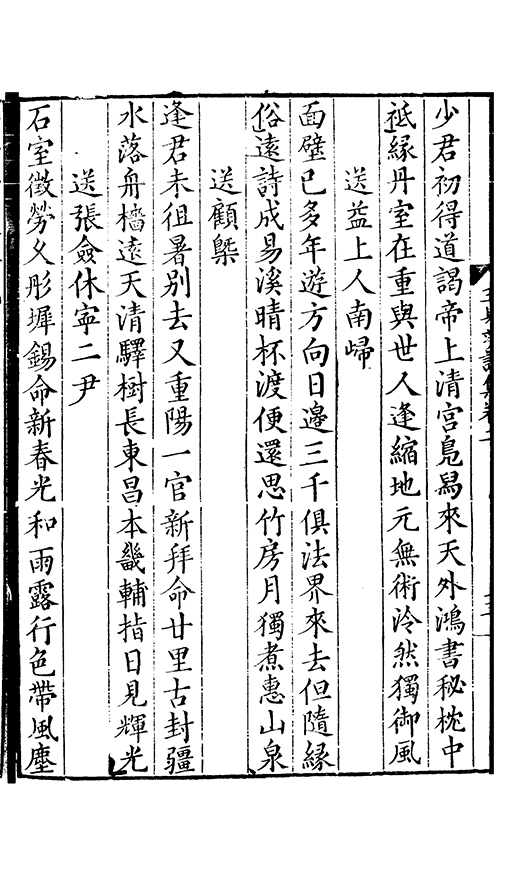 少君初得道謁帝上清宮鳧舄來天外鴻書秘枕中
祗緣丹室在重與世人逢縮地元無術泠然獨御風
送益上人南歸
面壁已多年遊方向日邊三千俱法界來去但隨緣
俗遠詩成易溪晴杯渡便還思竹房月獨煮惠山泉
送顧㮣
逢君未徂暑别去又重陽一官新拜命廿里古封疆
水落舟檣遠天清驛樹長東昌本畿輔指日見輝光
送張僉休寧二尹
石室徵勞久彤墀錫命新春光和雨露行色帶風塵